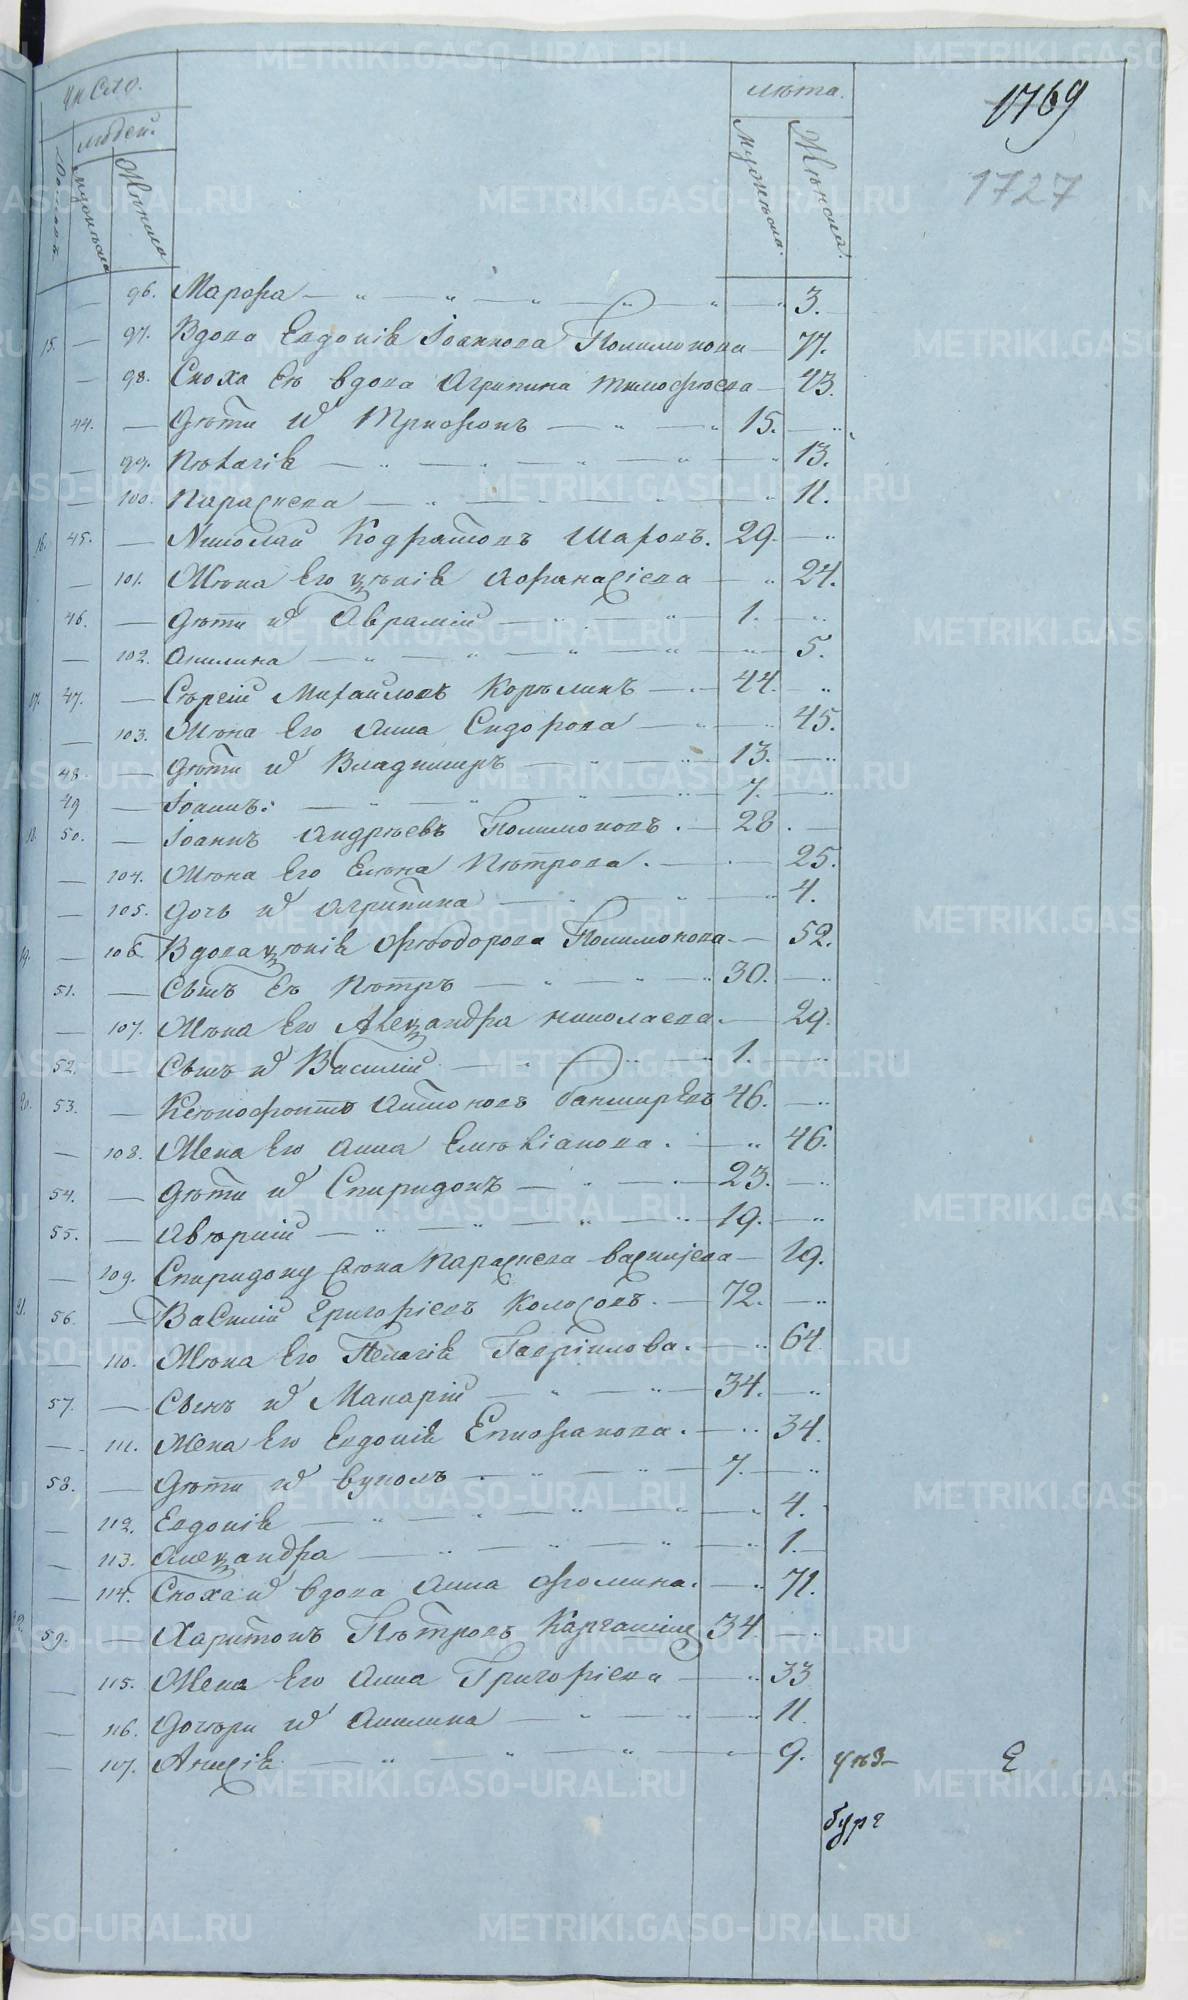 число.
лѣта.
1769
людей.
1727
мужеска
Женска
мужеска.
Женска.
96. Марѳа 3.
15. 97. Вдова Евдокіѧ Іоаннова Полимонова 77.
98. Сноха Еѧ вдова Агрипина тимоѳѣева 43.
44. Дѣти ихъ Трифонъ 15.
99. Пелагіѧ 13.
100. Параскева 11.
16. 45. Николай Кодратовъ Шаровъ. 29.
101. Жена Его Аѳанасіева 24.
46. Дѣти ихъ Аврамій 1.
102. Акилина 5.
17. 47. Сергій Михайловъ 44.
103. Жена Его Анна Сидорова 45.
48. Дѣти ихъ Владимиръ 13.
49 Іоаннъ. 7.
18. 50. Іоаннъ Андреевъ Полимоновъ. 28.
104. Жена Его Елена Петрова. 25.
105. Дочь ихъ Агрипина 4.
19. 106 Вдова Ѳеодорова Полимонова 52.
51. Сынъ Еѧ Петръ 30.
107. Жена Его Алеѯандра николаева. 29.
52. Сынъ ихъ Василій 1.
20. 53. Антоновъ 46.
108. Жена Его Анна Емеліанова. 46.
54. Дѣти ихъ Спиридонъ 23.
55. Аверкій 19.
109. Спиридону жена Параскева василіева 19.
21. 56. Василій Григоріевъ Колосовъ. 72.
110. Жена Его Пелагіѧ Гавріилова. 64
57. Сынъ ихъ Макарій 34.
111. Жена Его Евдокіѧ Епифанова. 34.
58. Дѣти ихъ вуколъ 7.
112. Евдокіѧ 4.
113. Алеѯандра 1.
114. Сноха ихъ вдова Анна Фомина. 71.
22. 59. Харитонъ Петровъ 34
115. Жена Его Анна Григоріева 33
116. Дочери ихъ Акилина 11.
107. Анисіѧ 9.
METRIKI.GASO-URAL.RU